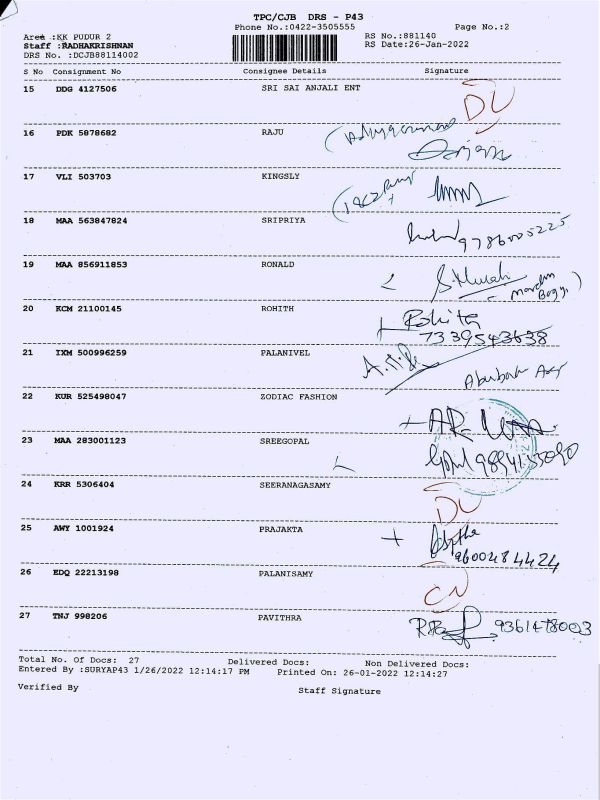 TPC/CJB DRS - P43
Phone No.:0422-3505555 Page No.:2
Area :KK PUDUR 2 RS No.:881140
Staff :RADHAKRISHNAN RS Date:26-Jan-2022
DRS No. :DCJB88114002
S No Consignment No Consignee Details Signature
15 DDG 4127506 SRI SAI ANJALI ENT
16 PDK 5878682 RAJU
17 VLI 503703 KINGSLY
18 MAA 563847824 SRIPRIYA
9786005225
19 MAA 856911853 RONALD
20 KCM 21100145 ROHITH
Rohith
7339543638
21 IXM 500996259 PALANIVEL
22 KUR 525498047 ZODIAC FASHION
23 MAA 283001123 SREEGOPAL
24 KRR 5306404 SEERANAGASAMY
25 AWY 1001924 PRAJAKTA
9600484424
26 EDQ 22213198 PALANISAMY
27 TNJ 998206 PAVITHRA
9361478003
Total No. Of Docs: 27 Delivered Docs: Non Delivered Docs:
Entered By :SURYAP43 1/26/2022 12:14:17 PM Printed On: 26-01-2022 12:14:27
Verified By Staff Signature